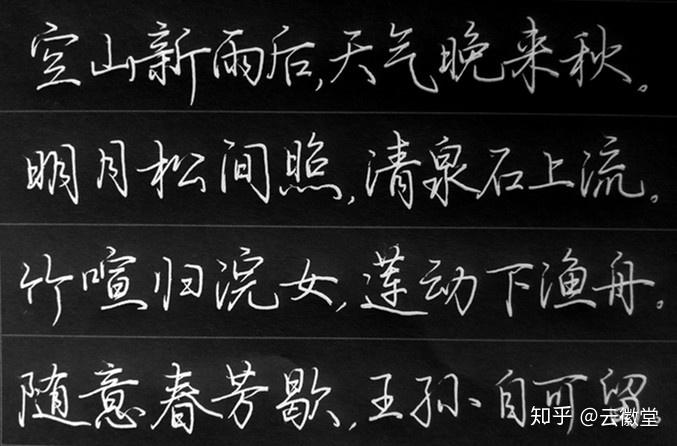 空山新雨后,天气晚来秋。
明月松间照,清泉石上流。
竹喧归浣女,莲动下渔舟。
随意春芳歇,王孙自可留。
知乎 @云徽堂